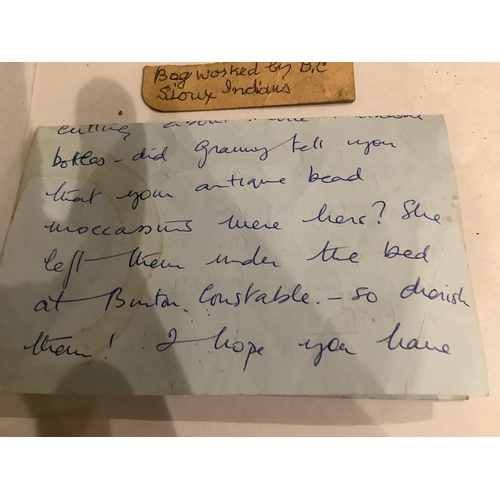 Bag worked by B.C
Sioux Indians
cutting about the
bottles - did Granny tell you
that your antique bead
moccassins were hers? She
left them under the bed
at Burton Constable. - so cherish
them! I hope you have